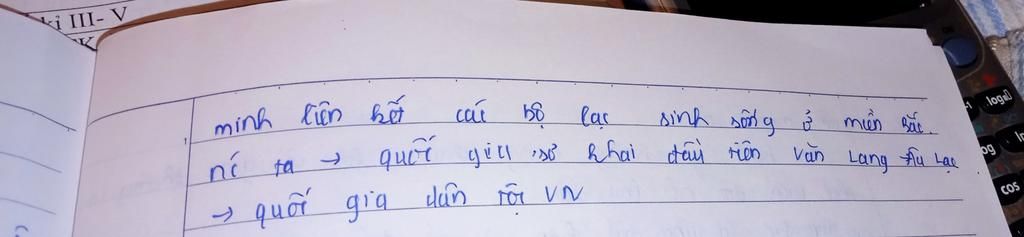 kỉ III- V
minh liên kết các bộ lạc sinh sống ở miền Bắc.
nc ta → quốc gia sơ khai đầu tiên Văn Lang - Âu Lạc
→ quốc gia dân tộc VN
log
cos